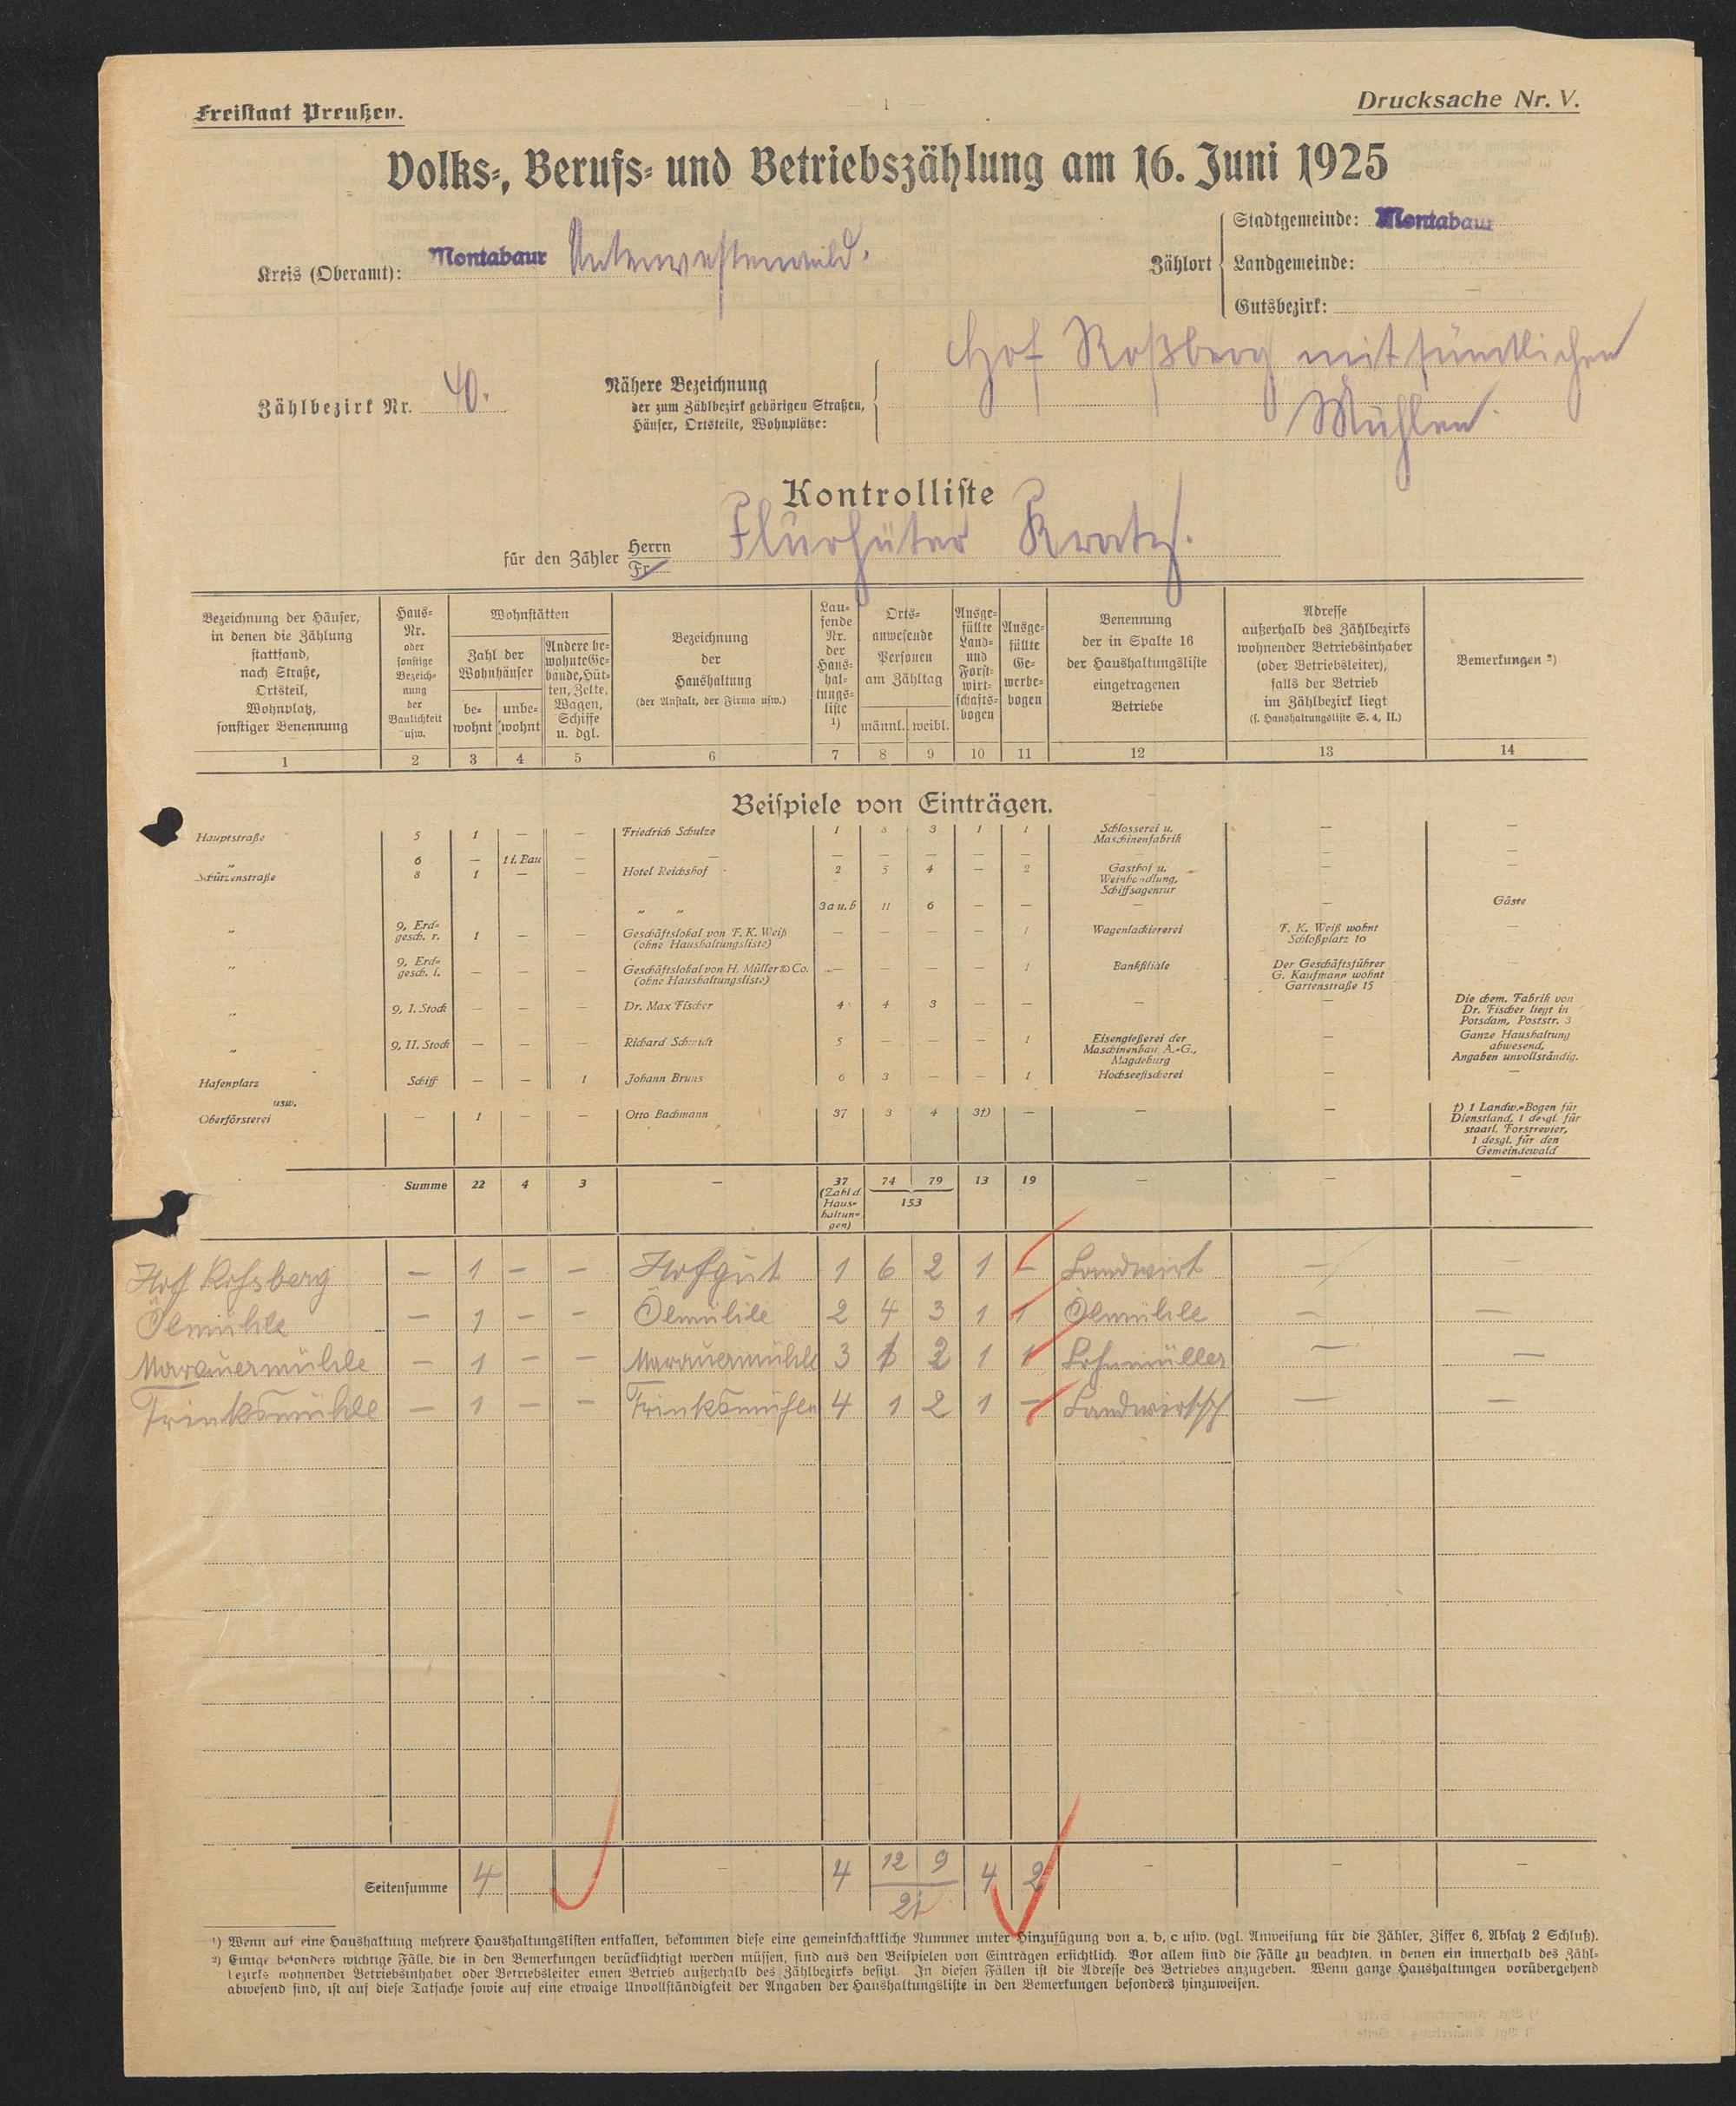 Freistaat Preußen.
1
Drucksache Nr. V.
Volks-, Berufs- und Betriebszählung am 16. Juni 1925
Kreis (Oberamt): Montabaur Unterwesterwald.
Zählort
Stadtgemeinde: Montabaur
Landgemeinde:
Gutsbezirk:
Zählbezirk Nr. 40.
Nähere Bezeichnung
der zum Zählbezirk gehörigen Straßen,
Häuser, Ortsteile, Wohnplätze:
Hof Roßberg mit sämtlichen
Mühlen.
Kontrolliste
für den Zähler Herrn Flurhüter Kratz.
Fr.
Bezeichnung der Häuser, in denen die Zählung stattfand, nach Straße, Ortsteil, Wohnplatz, sonstiger Benennung
Haus-Nr. oder sonstige Bezeich-nung der Baulichkeit usw.
Wohnstätten
Zahl der Wohnhäuser
be-wohnt
unbe-wohnt
Andere be-wohnte Ge-bäude, Hüt-ten, Zelte, Wagen, Schiffe u. dgl.
Bezeichnung der Haushaltung (der Anstalt, der Firma usw.)
Lau-fende Nr. der Haus-hal-tungs-liste 1)
Orts-anwesende Personen am Zähltag
männl. weibl.
Ausge-füllte Land- und Forst-wirt-schafts-bogen
Ausge-füllte Ge-werbe-bogen
Benennung der in Spalte 16 der Haushaltungsliste eingetragenen Betriebe
Adresse außerhalb des Zählbezirks wohnender Betriebsinhaber (oder Betriebsleiter), falls der Betrieb im Zählbezirk liegt (s. Haushaltungsliste S. 4, II.)
Bemerkungen 2)
1 2 3 4 5 6 7 8 9 10 11 12 13 14
Beispiele von Einträgen.
Hauptstraße 5 1 — — Friedrich Schulze 1 8 3 1 1 Schlosserei u. Maschinenfabrik — —
„ 6 — 1 i. Bau — — — — — — — — — —
Schützenstraße 8 1 — — Hotel Reichshof 2 5 4 — 2 Gasthof u. Weinhandlung, Schiffsagentur — —
„ „ 3 a u. b 11 6 — — — — Gäste
„ 9, Erd-gesch. r. 1 — — Geschäftslokal von F. K. Weiß (ohne Haushaltungsliste) — — — — 1 Wagenlackiererei F. K. Weiß wohnt Schloßplatz 10 —
„ 9, Erd-gesch. l. — — — Geschäftslokal von H. Müller & Co. (ohne Haushaltungsliste) — — — — 1 Bankfiliale Der Geschäftsführer G. Kaufmann wohnt Gartenstraße 15 —
„ 9, I. Stock — — — Dr. Max Fischer 4 4 3 — — — — Die chem. Fabrik von Dr. Fischer liegt in Potsdam, Poststr. 3
„ 9, II. Stock — — — Richard Schmidt 5 — — — 1 Eisengießerei der Maschinenbau A.-G., Magdeburg — Ganze Haushaltung abwesend, Angaben unvollständig.
Hafenplatz Schiff — — 1 Johann Bruns 6 3 — — 1 Hochseefischerei — —
usw.
Oberförsterei — 1 — — Otto Bachmann 37 3 4 3†) — — — †) 1 Landw.-Bogen für Dienstland, 1 desgl. für staatl. Forstrevier, 1 desgl. für den Gemeindewald
Summe 22 4 3 — 37 (Zahl d. Haus-haltun-gen) 74 79 13 19 — — —
153
Hof Rossberg — 1 — — Hofgut 1 6 2 1 — Landwirt — —
Ölmühle — 1 — — Ölmühle 2 4 3 1 1 Ölmühle — —
Marauermühle — 1 — — Marauermühle 3 1 2 1 1 Lohnmüller — —
Trinksmühle — 1 — — Trinksmühle 4 1 2 1 — Landwirtsch — —
Seitensumme 4 — 4 12 9 4 2 — — —
21
1) Wenn auf eine Haushaltung mehrere Haushaltungslisten entfallen, bekommen diese eine gemeinschaftliche Nummer unter Hinzufügung von a, b, c usw. (vgl. Anweisung für die Zähler, Ziffer 6, Absatz 2 Schluß).
2) Einige besonders wichtige Fälle, die in den Bemerkungen berücksichtigt werden müssen, sind aus den Beispielen von Einträgen ersichtlich. Vor allem sind die Fälle zu beachten, in denen ein innerhalb des Zähl-
bezirks wohnender Betriebsinhaber oder Betriebsleiter einen Betrieb außerhalb des Zählbezirks besitzt. In diesen Fällen ist die Adresse des Betriebes anzugeben. Wenn ganze Haushaltungen vorübergehend
abwesend sind, ist auf diese Tatsache sowie auf eine etwaige Unvollständigkeit der Angaben der Haushaltungsliste in den Bemerkungen besonders hinzuweisen.